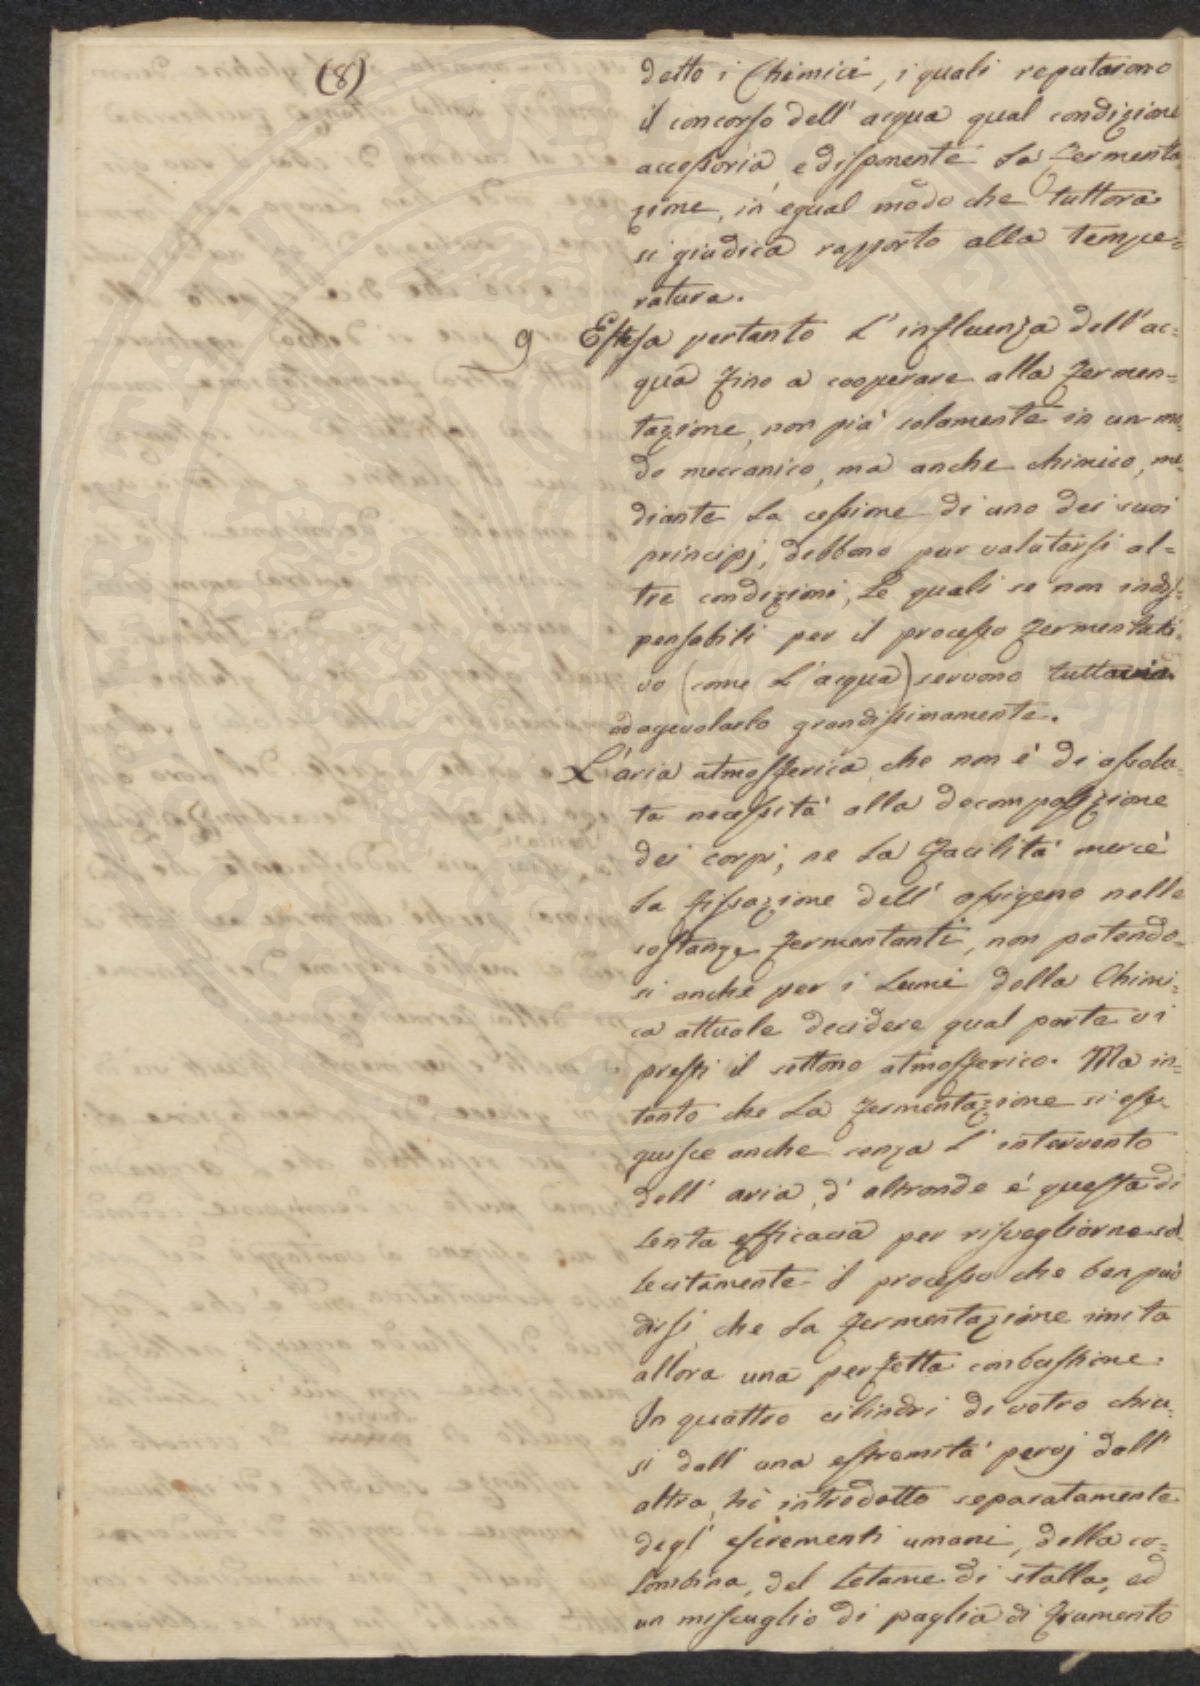 (8)
detto i Chimici, i quali reputarono
il concorso dell' acqua qual condizione
accessoria, e disponente la fermenta
zione, in egual modo che tuttora
si giudica rapporto alla tempe=
ratura.
9 Estesa pertanto l' influenza dell' ac=
qua fino a cooperare alla fermen=
tazione, non più solamente in un mo=
do meccanico, ma anche chimico, me=
diante la cessione di uno dei suoi
principj, debbono pur valutarsi al=
tre condizioni, le quali se non indis=
pensabili per il processo fermentati=
vo (come l' acqua) servono tuttavia
ad agevolarlo grandissimamente.
L' aria atmosferica che non é di assolu=
ta necessità alla decomposizione
dei corpi, ne la facilita mercè
la fissazione dell' ossigeno nelle
sostanze fermentanti, non potendo=
si anche per i lumi della Chimi=
ca attuale decidere qual parte vi
presti il settono atmosferico. Ma in=
tanto che la fermentazione si ese=
guisce anche senza l' intervento
dell' aria, d' altronde é questa di
tanta efficacia per risvegliarne sol=
lecitamente il processo che ben può
dirsi, che la fermentazione imita
allora una perfetta combustione.
In quattro cilindri di vetro chiu=
si dall' una estremità pervj dall'
altra, hò introdotto separatamente
degl' escrementi umani, della co=
lombina, del letame di stalla, ed
un miscuglio di paglia di frumento